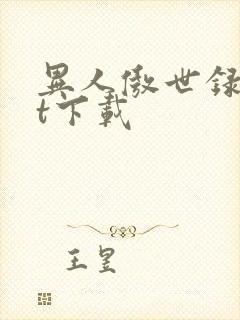 異人傲世録
t下載
王昱